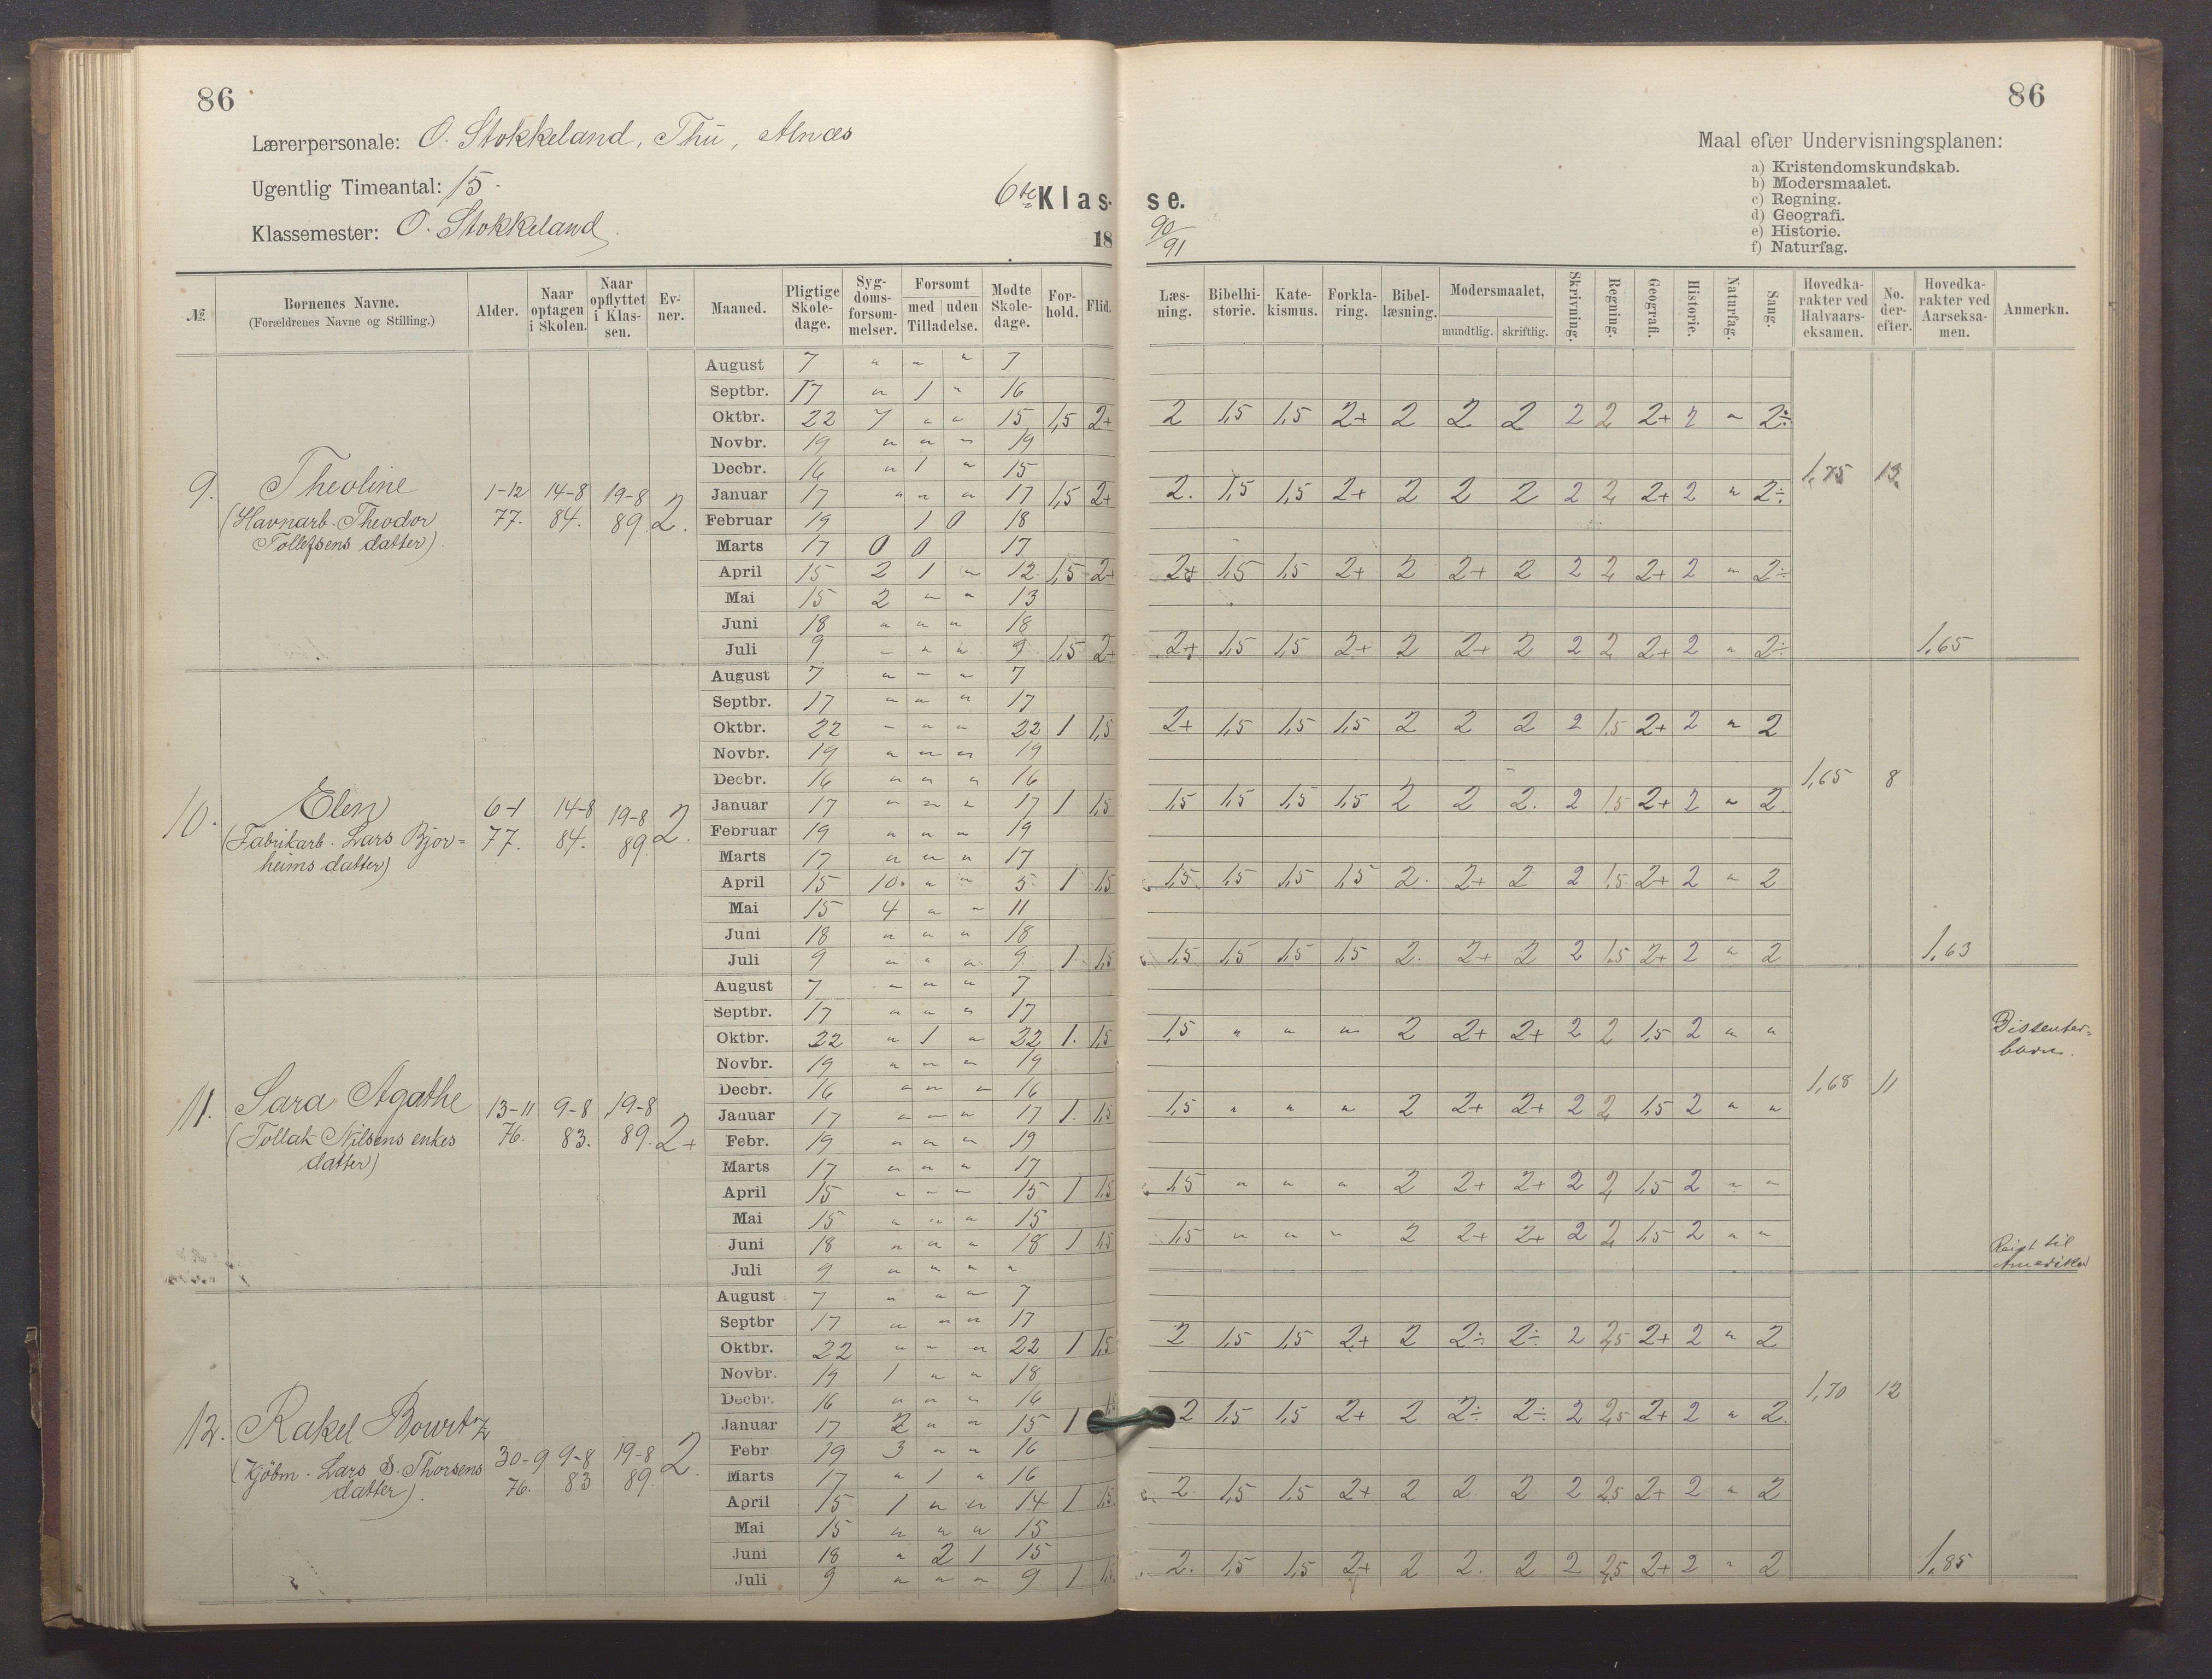 86
86
Lærerpersonale: O. Stokkeland, Thu, Alnæs
Ugentlig Timeantal: 15.
Klassemester: O. Stokkeland.
6te Klas- se.
18 90/91
Maal efter Undervisningsplanen:
a) Kristendomskundskab.
b) Modersmaalet.
c) Regning.
d) Geografi.
e) Historie.
f) Naturfag.
№ Børnenes Navne. (Forældrenes Navne og Stilling.) Alder. Naar optagen i Skolen. Naar opflyttet i Klassen. Evner. Maaned. Pligtige Skoledage. Sygdomsforsømmelser. Forsømt med uden Tilladelse. Mødte Skoledage. Forhold. Flid. Læsning. Bibelhistorie. Katekismus. Forklaring. Bibellæsning. Modersmaalet, mundtlig. skriftlig. Skrivning. Regning. Geografi. Historie. Naturfag. Sang. Hovedkarakter ved Halvaarseksamen. No. derefter. Hovedkarakter ved Aarseksamen. Anmerkn.
9. Theoline
(Havnarb. Theodor
Tollefsens datter).
1-12 77. 14-8 84. 19-8 89. 2.
August 7 " " " 7
Septbr. 17 " 1 " 16
Oktbr. 22 7 " " 15 1,5 2+ 2 1,5 1,5 2+ 2 2 2 2 2 2+ 2 " 2÷
Novbr. 19 " " " 19
Decbr. 16 " 1 " 15
1,75 13
Januar 17 " " " 17 1,5 2+ 2. 1,5 1,5 2+ 2 2 2 2 2 2+ 2 " 2÷
Februar 19 1 0 18
Marts 17 0 0 17
April 15 2 1 " 12 1,5 2+ 2+ 1,5 1,5 2+ 2 2+ 2 2 2 2+ 2 " 2÷
Mai 15 2 " " 13
Juni 18 " " " 18
Juli 9 " " " 9 1,5 2+ 2+ 1,5 1,5 2+ 2 2+ 2 2 2 2+ 2 " 2÷ 1,65
10. Elen
(Fabrikarb. Lars Bjor=
heims datter)
6-1 77. 14-8 84. 19-8 89 2.
August 7 " " " 7
Septbr. 17 " " " 17
Oktbr. 22 " " " 22 1 1,5 2+ 1,5 1,5 1,5 2 2 2 2 1,5 2+ 2 " 2
Novbr. 19 " " " 19
Decbr. 16 " " " 16
1,65 8
Januar 17 " " " 17 1 1,5 1,5 1,5 1,5 1,5 2 2 2. 2 1,5 2+ 2 " 2
Februar 19 " " " 19
Marts 17 " " " 17
April 15 10. " " 5 1 1,5 1,5 1,5 1,5 1,5 2. 2+ 2 2 1,5 2+ 2 " 2
Mai 15 4 " " 11
Juni 18 " " " 18
Juli 9 " " " 9 1 1,5 1,5 1,5 1,5 1,5 2. 2+ 2 2 1,5 2+ 2 " 2 1,63
11. Sara Agathe
(Tollak Nilsens enkes
datter)
13-11 76. 9-8 83. 19-8 89. 2+
August 7 " " " 7
Septbr. 17 " " " 17
Oktbr. 22 " 1 " 22 1. 1,5 1,5 " " " 2 2+ 2+ 2 2 1,5 2 " "
Dissenter=
barn.
Novbr. 19 " " " 19
Decbr. 16 " " " 16
1,68 11
Januar 17 " " " 17 1. 1,5 1,5 " " " 2 2+ 2+ 2 2 1,5 2 " "
Febr. 19 " " " 19
Marts 17 " " " 17
April 15 " " " 15 1 1,5 1,5 " " " 2 2+ 2+ 2 2 1,5 2 " "
Mai 15 " " " 15
Juni 18 " " " 18 1 1,5 1,5 " " " 2 2+ 2+ 2 2 1,5 2 " "
Juli 9 " " " "
Reist til
Amerika
12. Rakel Bowitz
(Kjöbm. Lars S. Thorsens
datter).
30-9 76. 9-8 83 19-8 89. 2.
August 7 " " " 7
Septbr 17 " " " 17
Oktbr. 22 " " " 22 1 1,5 2 1,5 1,5 2+ 2 2÷ 2÷ 2 2,5 2+ 2 " 2
Novbr. 19 1 " " 18
Decbr. 16 " " " 16
1,70 12
Januar 17 2 " " 15 1 1,5 2 1,5 1,5 2+ 2 2÷ 2÷ 2 2,5 2+ 2 " 2.
Febr 19 3 " " 16
Marts 17 " 1 " 16
April 15 1 " " 14 1 1,5 2. 1,5 1,5 2+ 2 2 2 2 2,5 2+ 2 " 2
Mai 15 " " " 15
Juni 18 " 2 1 15
Juli 9 " " " 9 1 1,5 2. 1,5 1,5 2+ 2 2. 2 2 2,5 2+ 2 " 2 1,85